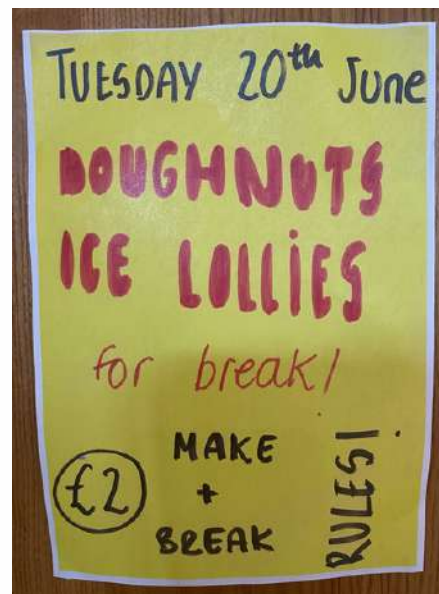 TUESDAY 20th June
DOUGHNUTS
ICE LOLLIES
for break!
£2
MAKE
+
BREAK
RULES!